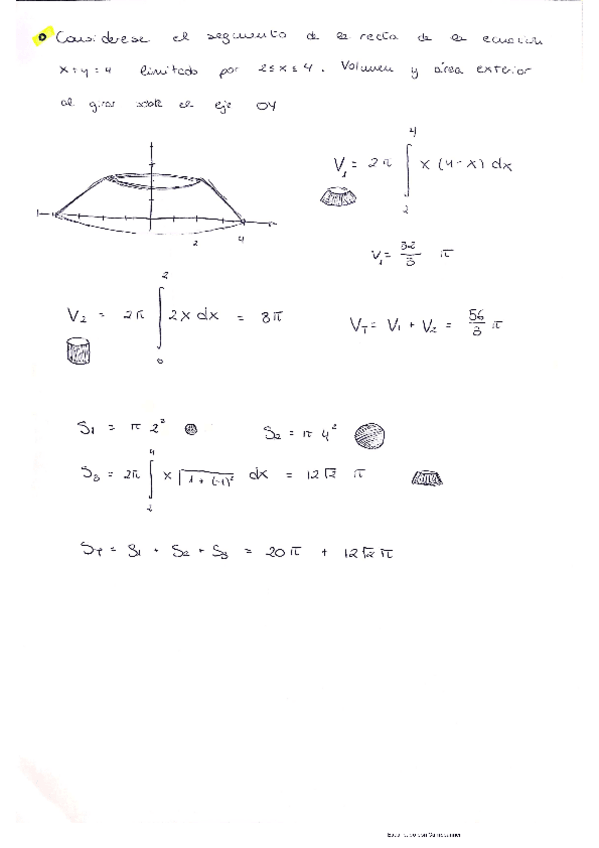 Considerese el segmento de la recta de la ecuacion
x+y=4 limitado por 2≤x≤4. Volumen y área exterior
al girar sobre el eje OY
V₁ = 2π ∫₂⁴ x (4-x) dx
2 4
V₁ = 32/3 π
V₂ = 2π ∫₀² 2x dx = 8π
V_T = V₁ + V₂ = 56/3 π
S₁ = π 2²
S₂ = π 4²
S₃ = 2π ∫₂⁴ x √(1 + (-1)²) dx = 12√2 π
S_T = S₁ + S₂ + S₃ = 20π + 12√2 π